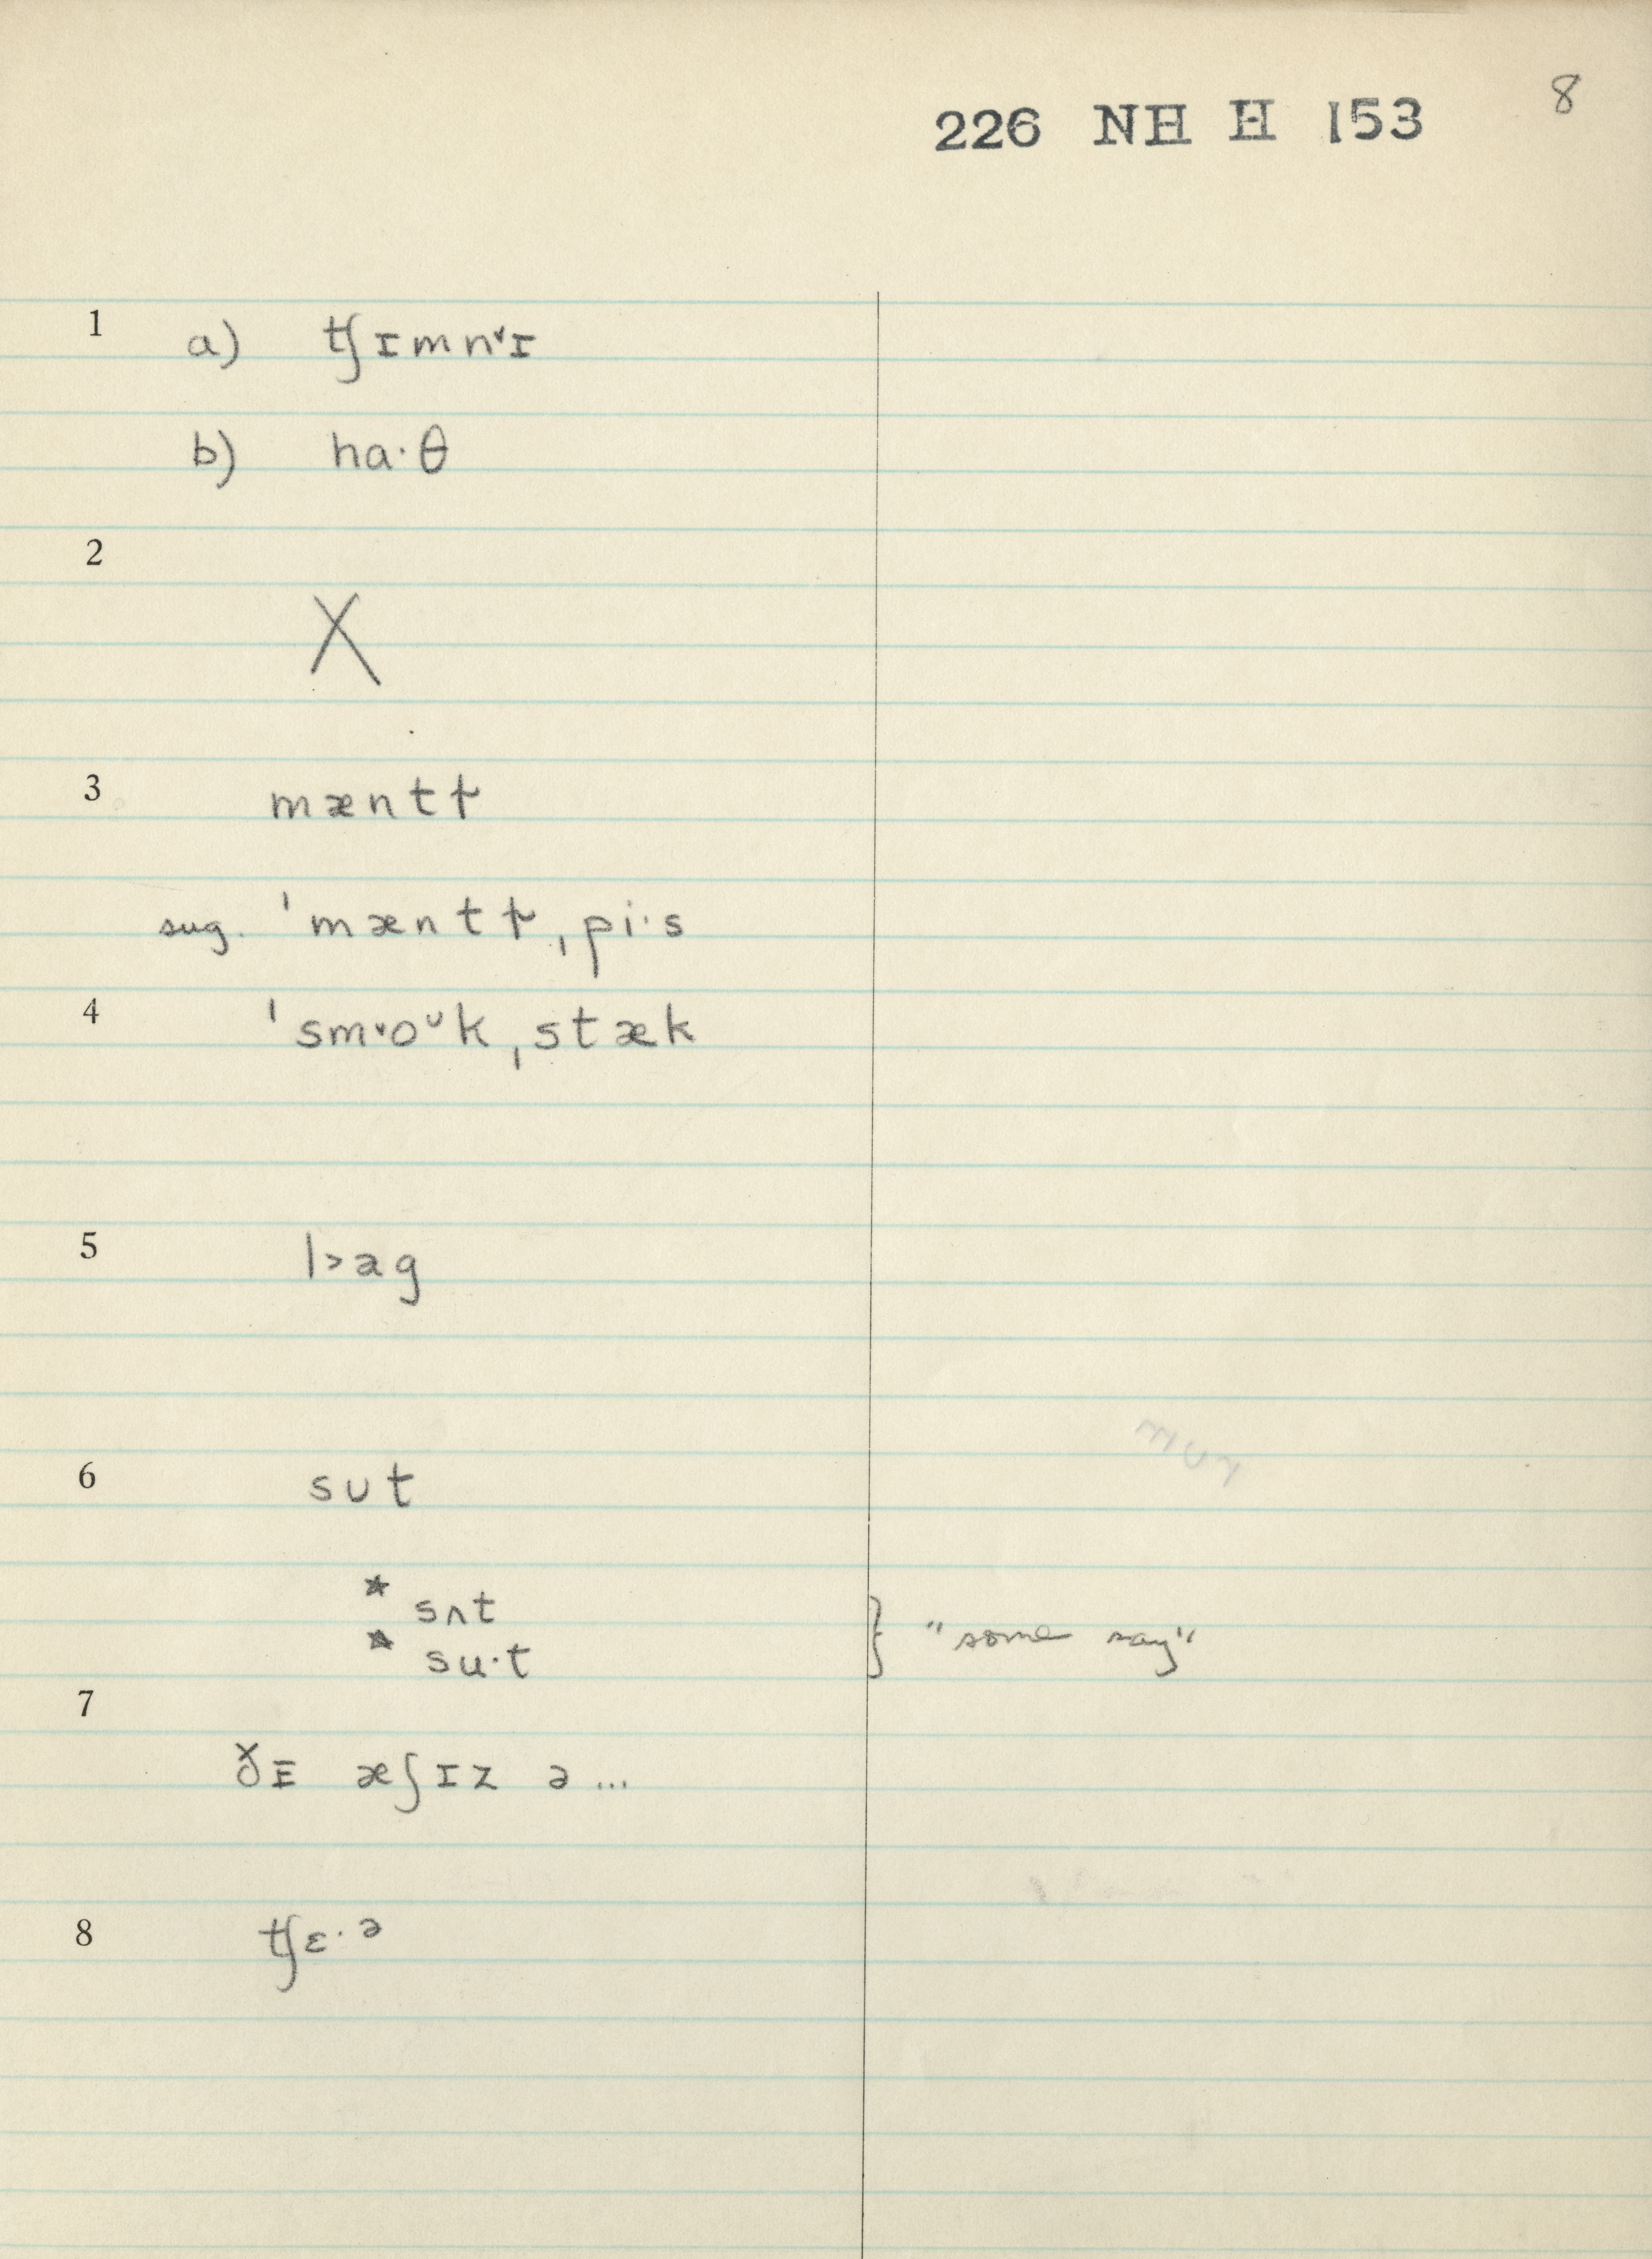 8
226 NH H 153
1 a) tʃɪmnˇɪ
b) ha·θ
2 X
3 mæntɫ
sug. ˈmæntɫˌpi·s
4 ˈsmˇoᶷkˌstæk
5 l>ag
6 sʊt
* sʌt
* su·t } "some say"
7
ðɪ æʃɪz ə...
8 tʃɛ·ᵊ